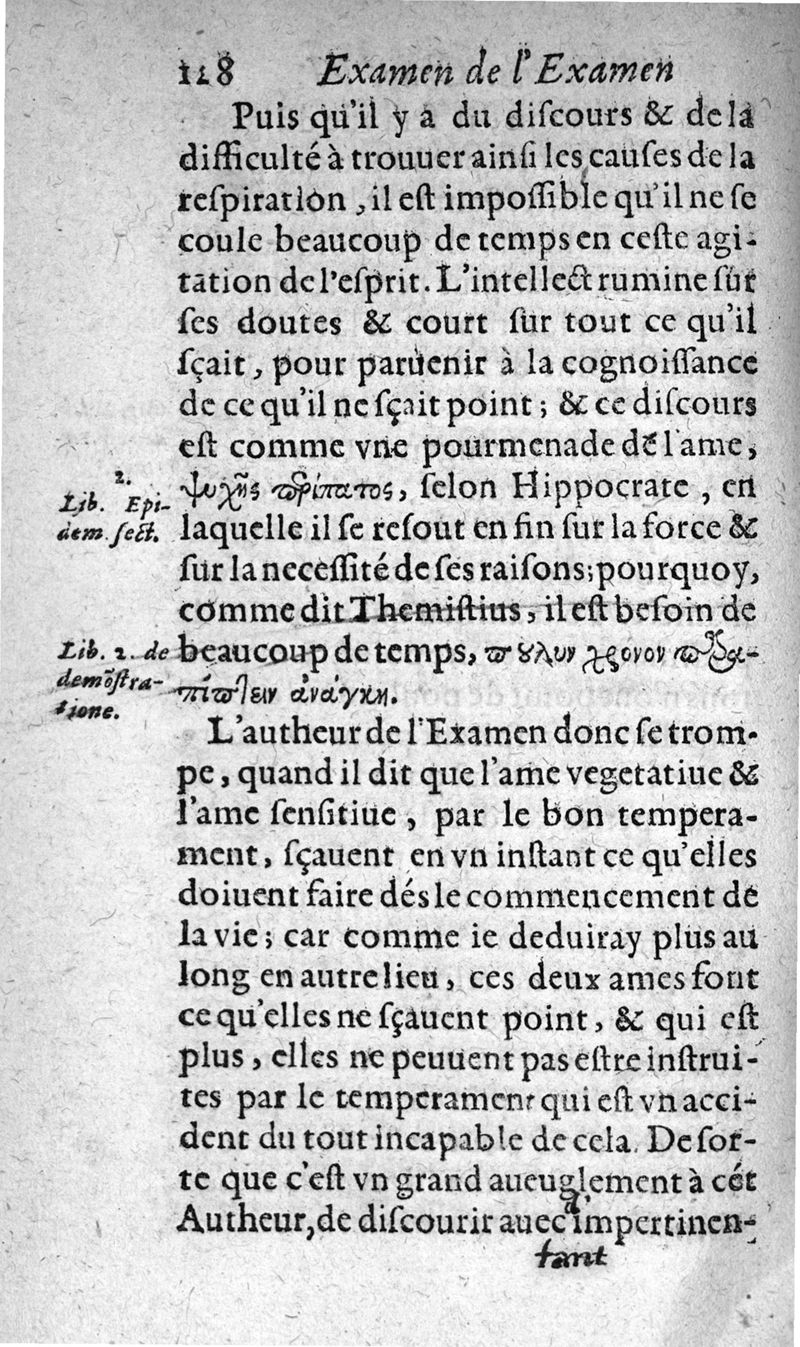 128 Examen de l'Examen
Puis qu'il y a du diſcours & de la
difficulté à trouuer ainſi les cauſes de la
reſpiration, il eſt impoſſible qu'il ne ſe
coule beaucoup de temps en ceſte agi-
tation de l'eſprit. L'intellect rumine ſur
ſes doutes & court ſur tout ce qu'il
ſçait, pour paruenir à la cognoiſſance
de ce qu'il ne ſçait point; & ce diſcours
eſt comme vne pourmenade de l'ame,
ψυχῆς περίπατος, ſelon Hippocrate, en
laquelle il ſe reſout en fin ſur la force &
ſur la neceſſité de ſes raiſons; pourquoy,
comme dit Themiſtius, il eſt beſoin de
beaucoup de temps, πουλυν χρονον
ἀνάγκη.
L'autheur de l'Examen donc ſe trom-
pe, quand il dit que l'ame vegetatiue &
l'ame ſenſitiue, par le bon tempera-
ment, ſçauent en vn inſtant ce qu'elles
doiuent faire dés le commencement de
la vie; car comme ie deduiray plus au
long en autre lieu, ces deux ames font
ce qu'elles ne ſçauent point, & qui eſt
plus, elles ne peuuent pas eſtre inſtrui-
tes par le temperament qui eſt vn acci-
dent du tout incapable de cela. De ſor-
te que c'eſt vn grand aueuglement à cét
Autheur, de diſcourir auec impertinen-
tant
Lib. 2. Epi-
dem. ſect.
Lib. 2. de
demõſtra-
tione.